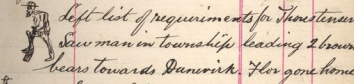 Left list of requirements for Thorstensen
Saw man in township leading 2 brown
bears towards Danevirk. Flor gone home